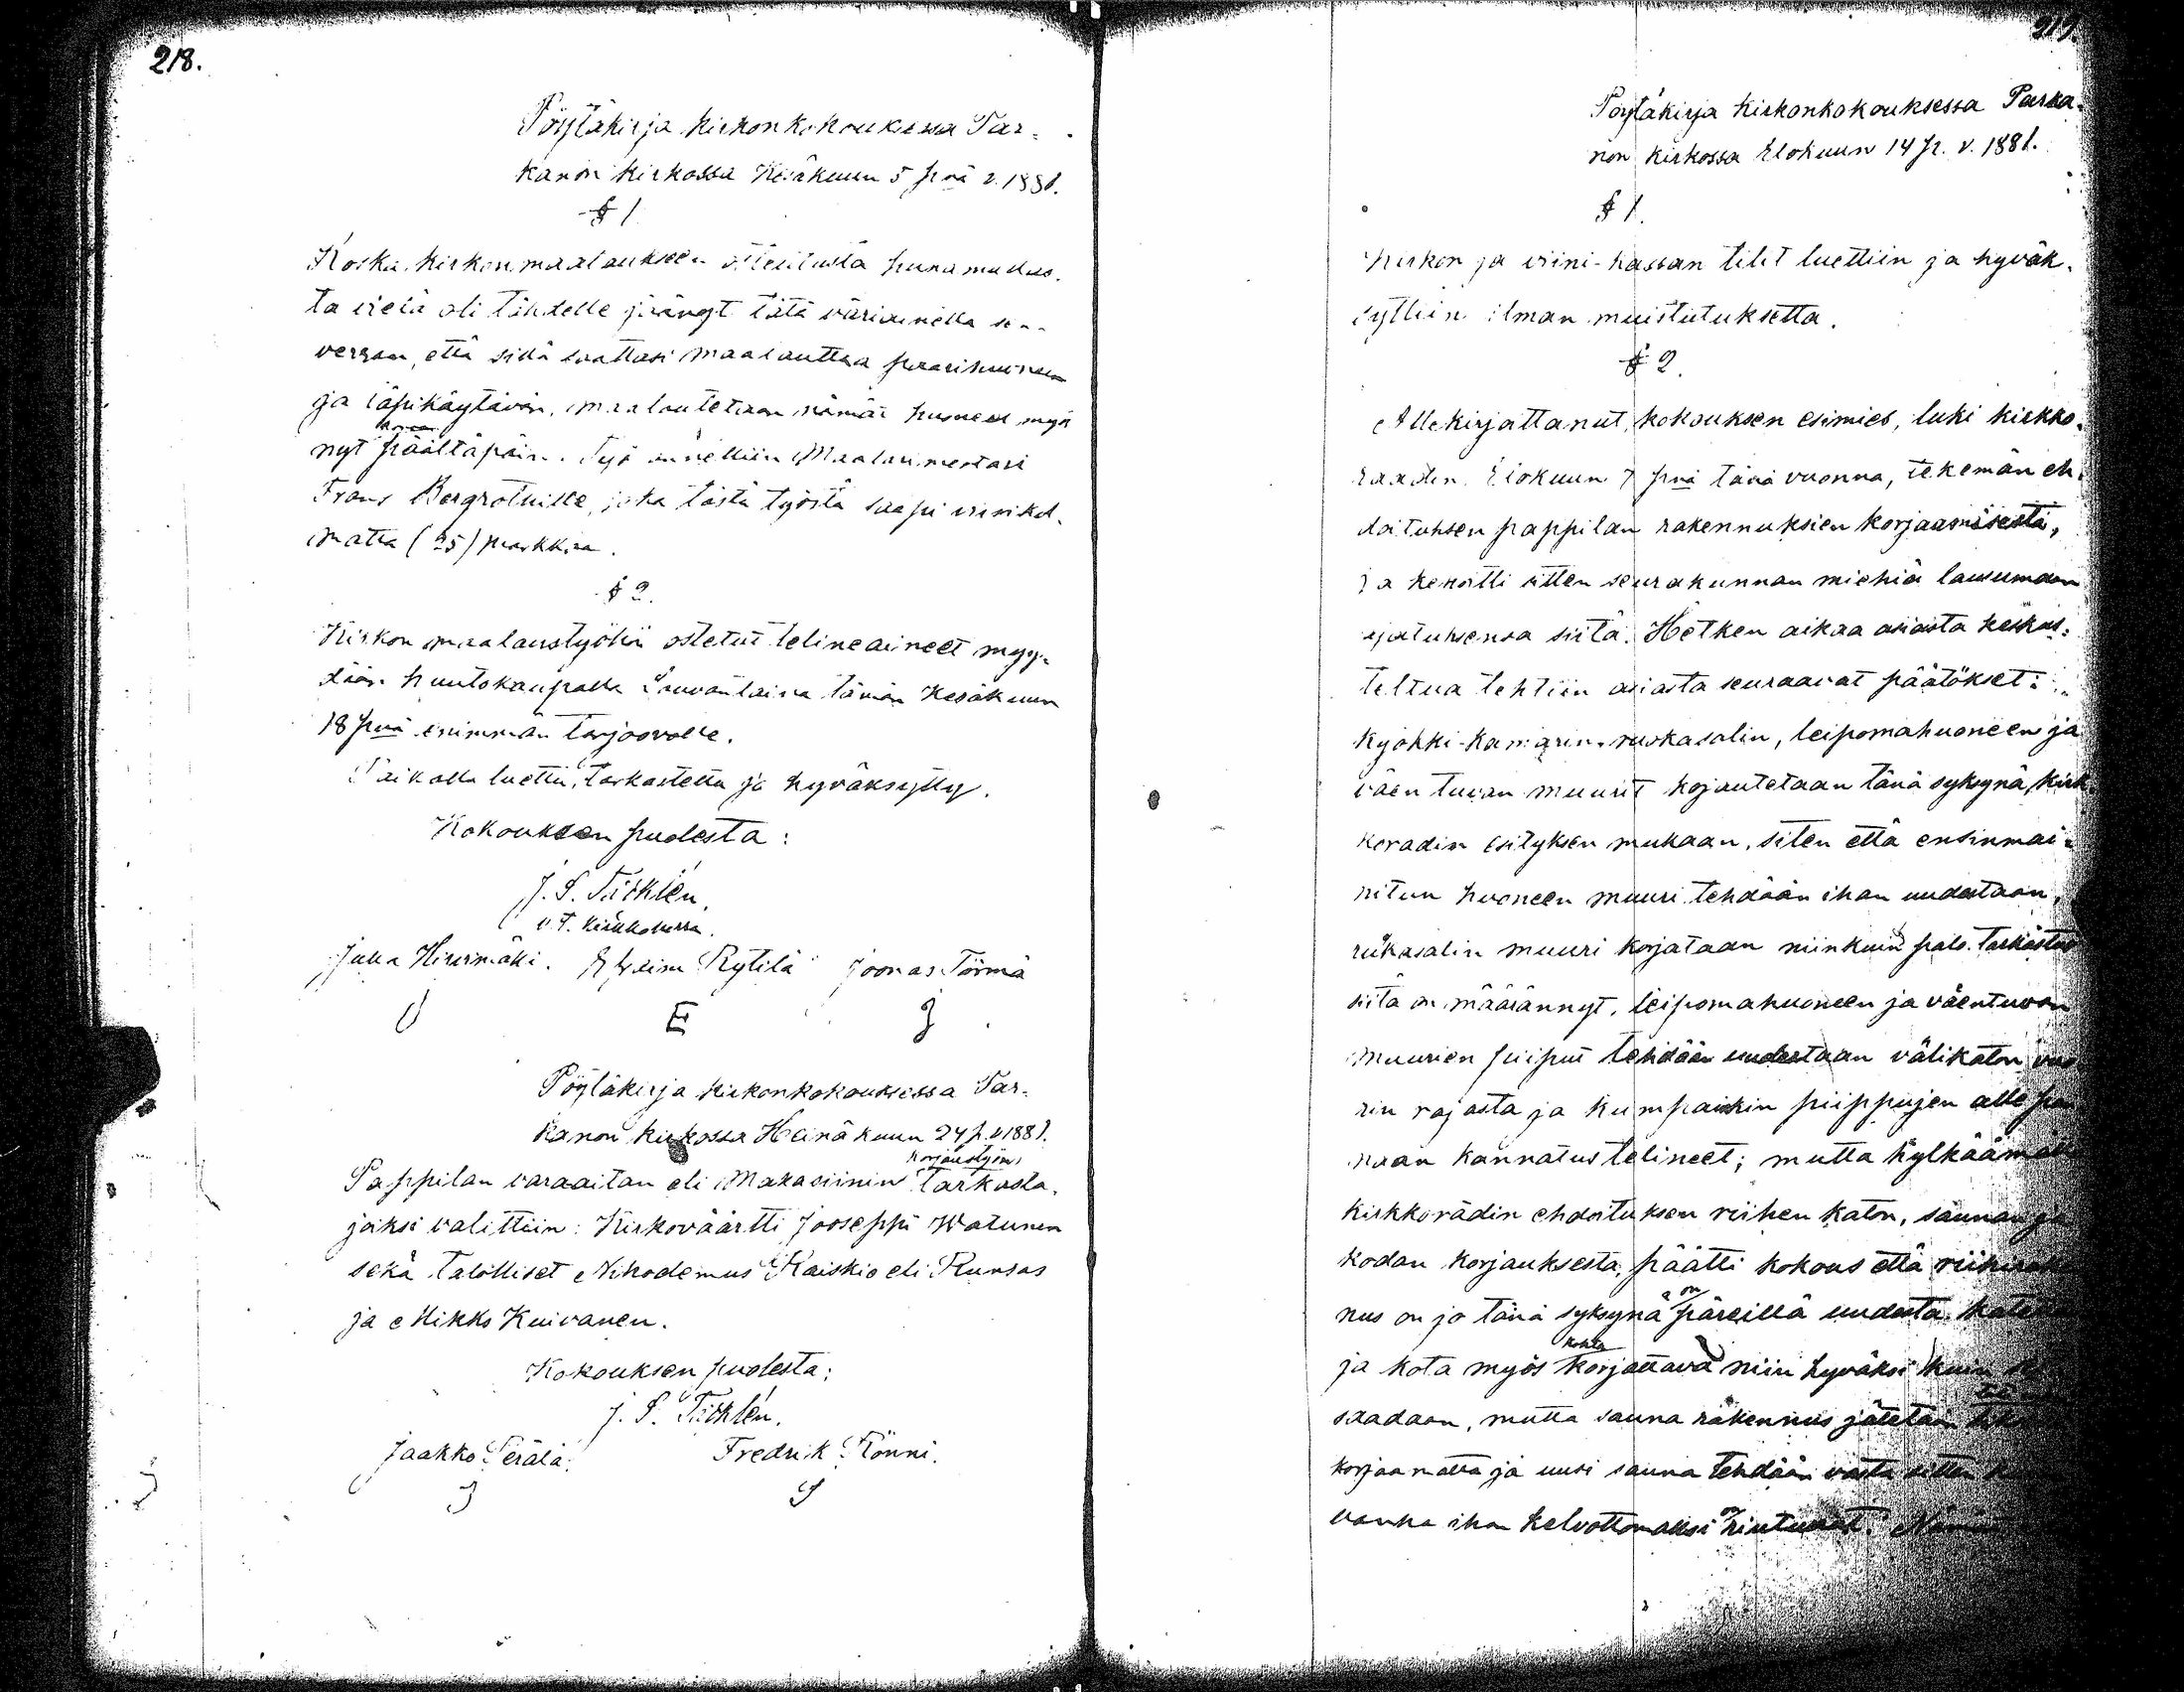 218.
Pöytäkirja kirkonkokouksessa Par-
kanon kirkossa Kesäkuun 5 pnä v. 1881.
§ 1
Koska kirkonmaalaukseen punamullas-
ta vielä oli tähdelle jäänyt tätä väriainetta sen
verran, että sillä saattasi maalauttaa paarihuoneen
ja läpikäytävän, maalautetaan nämät huoneet myös
nyt päältäpäin. Työ annettiin Maalarimestari
Frans Bergrothille, joka tästä työstä saapi viisikol-
matta (25) markkaa.
§ 2.
Kirkon maalaustyöhön ostetut telineaineet myy-
dään huutokaupalla lauvantaina tämän Kesäkuun
18 pnä enimmän tarjoovalle.
Paikalla luettu, tarkastettu ja hyväksytty.
Kokouksen puolesta:
J. S. Täcklén.
v. t. kirkkoherra.
Juha Hirvimäki. Efraim Rytilä Joonas Törmä
J E J
Pöytäkirja kirkonkokouksessa Par-
kanon kirkossa Heinäkuun 24 p. v 1881.
korjaustyön
Pappilan varaaitan eli Makasiinin tarkasta-
jaksi valittiin: Kirkoväärtti Jooseppi Watunen
sekä talolliset Nikodemus Raiskio eli Runsas
ja Mikko Kuivanen.
Kokouksen puolesta:
J. S. Täcklén.
Jaakko Perälä. Fredrik Rönni.
J
219.
Pöytäkirja kirkonkokouksessa Parka-
non kirkossa Elokuun 14 p. v. 1881.
§ 1.
Kirkon ja viini-kassan tilit luettiin ja hyväk-
syttiin ilman muistutuksetta.
§ 2.
Allekirjattanut, kokouksen esimies, luki kirkko-
raadin Elokuun 7 pnä tänä vuonna, tekemän eh-
doituksen pappilan rakennuksien korjaamisesta,
ja kehoitti sitten seurakunnan miehiä lausumaan
ajatuksensa siitä. Hetken aikaa asiasta keskus-
teltua tehtiin asiasta seuraavat päätökset:
Kyökki-kamarin, ruokasalin, leipomahuoneen ja
väen tuvan muurit kojautetaan tänä syksynä, kirk-
koradin esityksen mukaan, siten että ensinmai-
nitun huoneen muuri tehdään ihan uudestaan,
ruokasalin muuri korjataan niinkuin palo tarkastus
siitä on määrännyt, leipomahuoneen ja väentuvan
muurien piiput tehdään uudestaan välikaton vuo-
rin rajasta ja kumpaisiin piippujen alle pa
naan kannatustelineet; mutta hylkäämällä
kirkkorädin ehdoituksen riihen katon, saunan ja
kodan korjauksesta, päätti kokous että
nus on jo tänä syksynä päreillä uudesta
kohta
ja kota myös korjattava niin hyväksi kuin
saadaan, mutta sauna rakennus jätetään
korjaamatta ja uusi sauna tehdään vasta sitten
vanha ihan kelvottomaksi